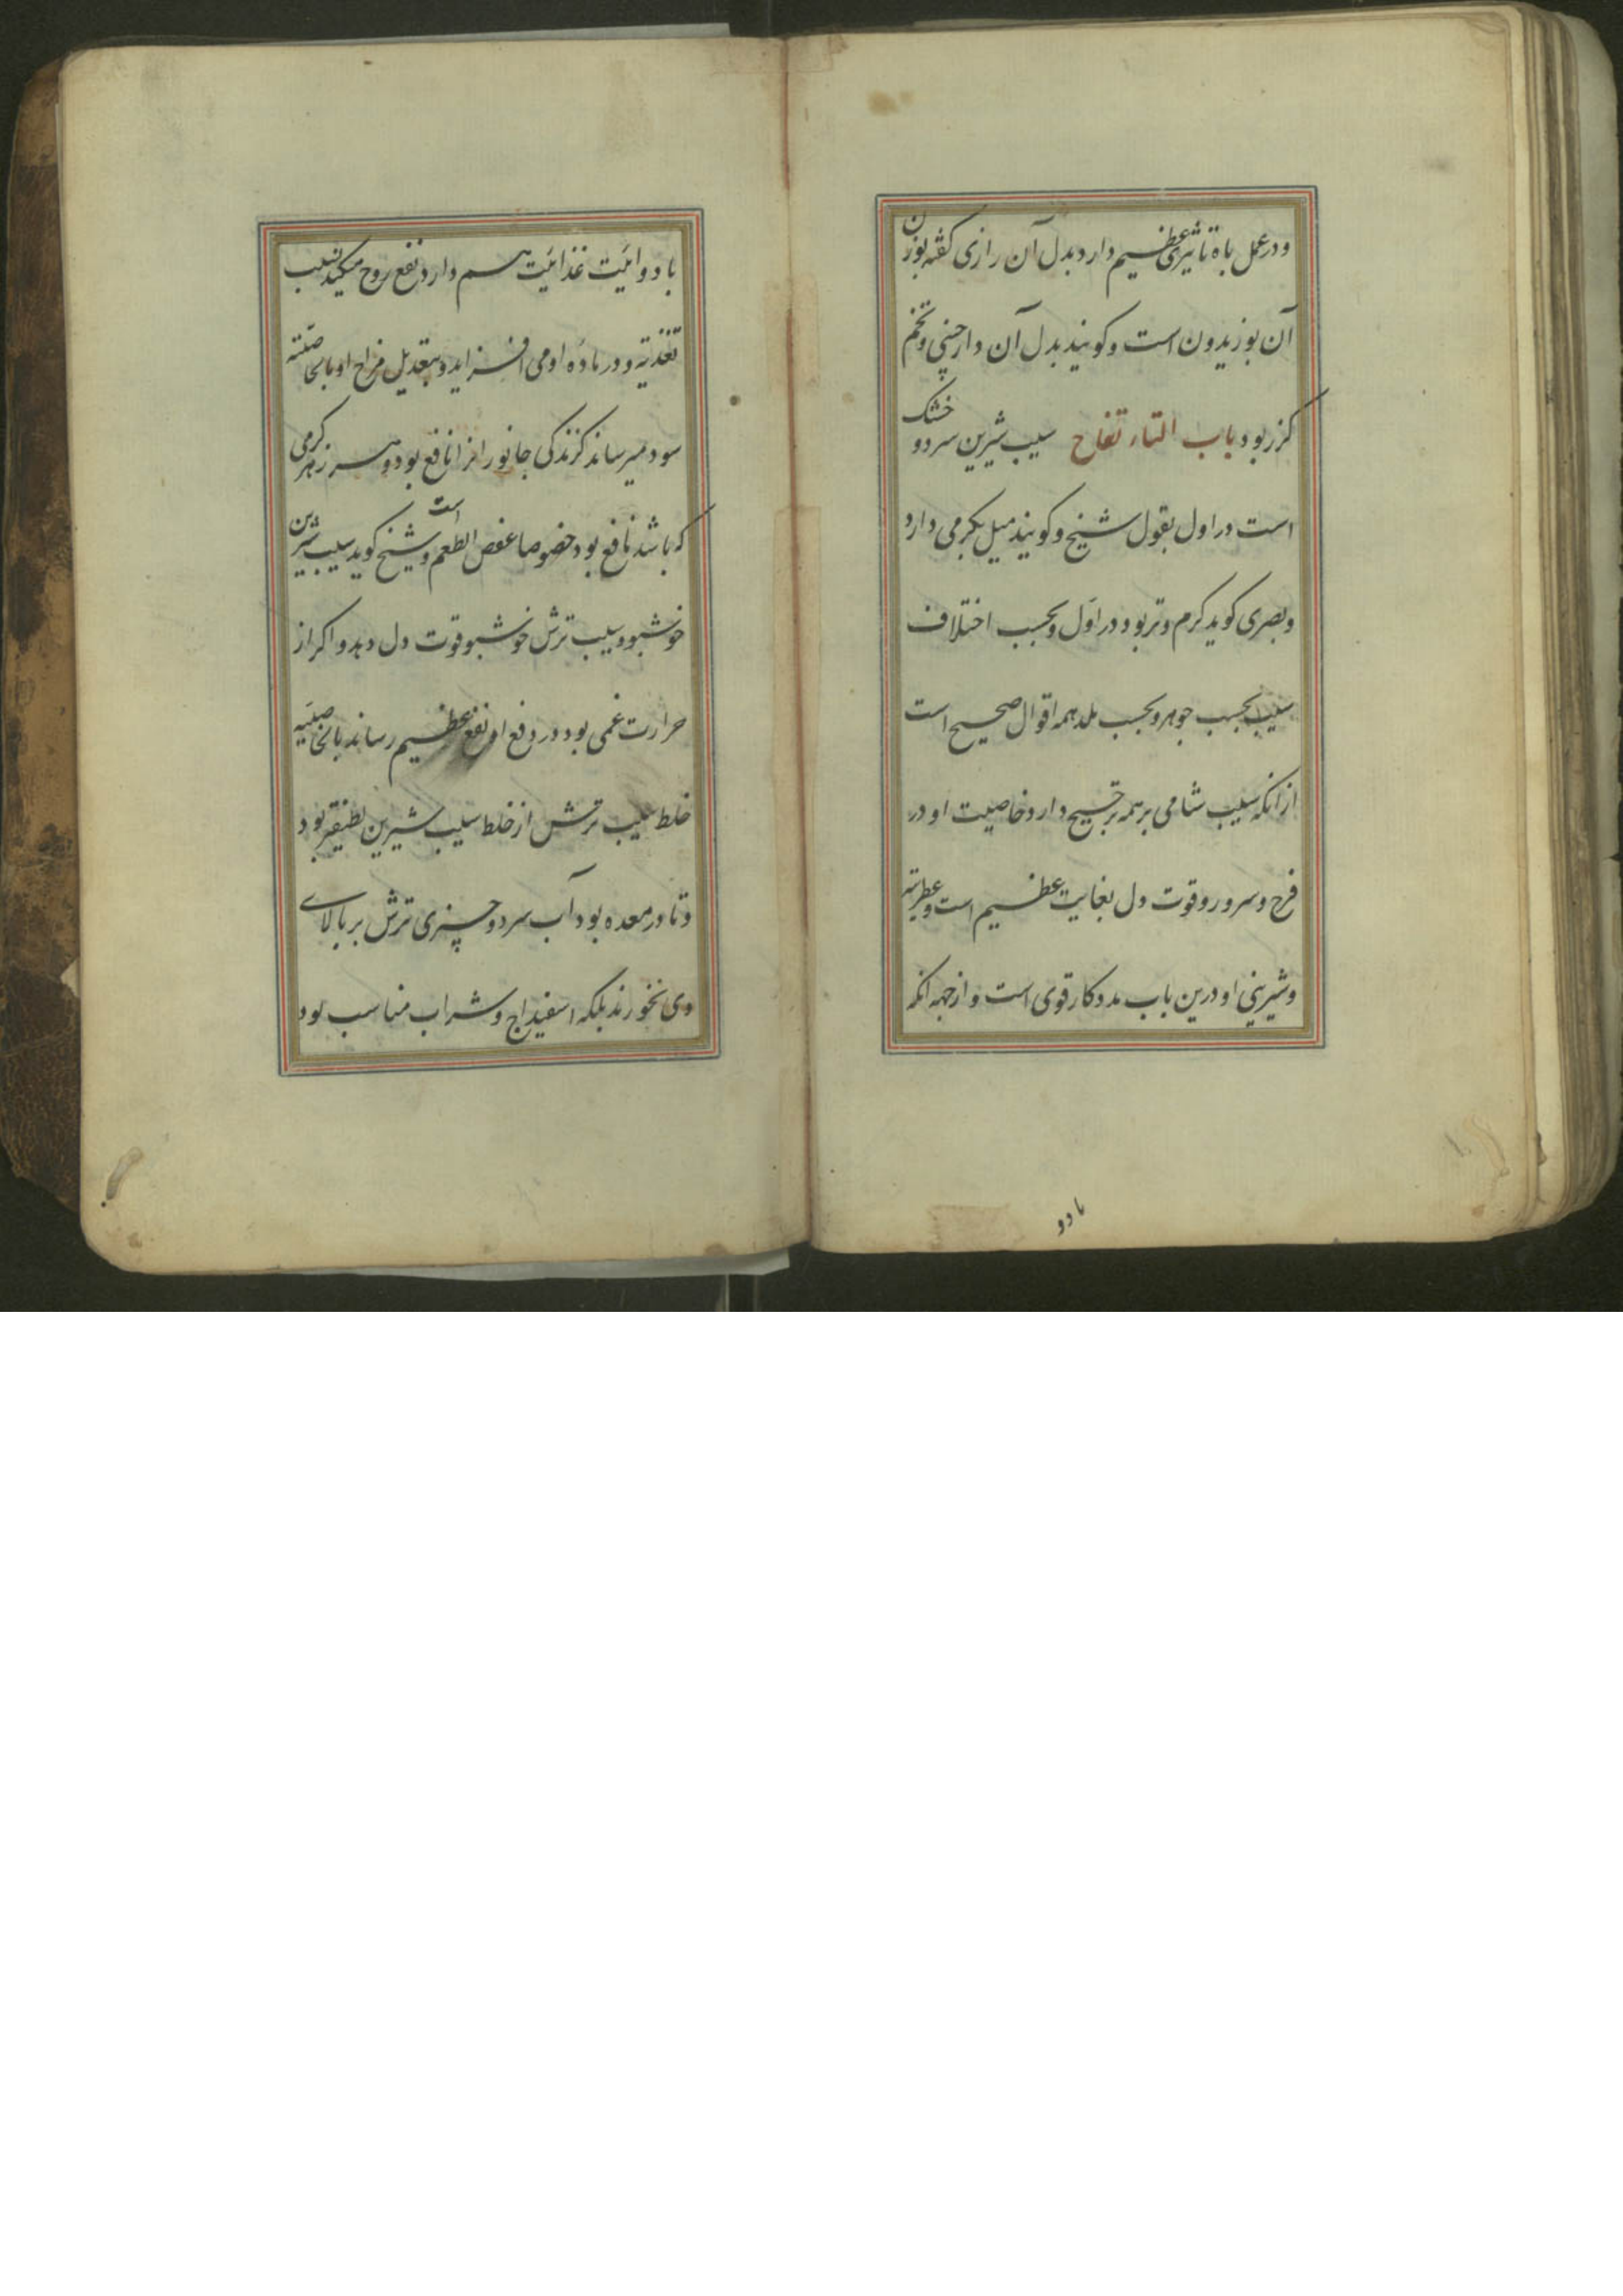 و در عمل باه تاثیری عظیم دارد بدل آن رازی گفته بوزن
آن بوزیدون است و کویند بدل آن دارچینی و تخم
کزر بود باب التاء تفاح سیب شیرین سرد و خشک
است در اول بقول شیخ و کویند میل بکرمی دارد
و بصری کوید کرم و تر بود در اول و بحسب اختلاف
سیب بحسب جوهر و بحسب بلد همه اقوال صحیح است
از انکه سیب شامی بر همه ترجیح دارد و خاصیت او در
فرح و سرور و قوت دل بغایت عظیم است و عطریته
و شیرینی او درین باب مددکار قوی است و از جهه انکه
بادو
با دوائیت غذائیت هم دارد نفع روح میکند بسبب
تغذیه و در ماده او می افزاید و بتعدیل مزاج او بالخاصیته
سود میرساند کزندکی جانورانرا نافع بود و هر زهر کرمی
که باشد نافع بود خصوصا عفص الطعم است و شیخ کوید سیب شیرین
خوشبو و سیب ترش خوشبو قوت دل دهد و اکر از
حرارت غمی بود در دفع او نفع عظیم رساند بالخاصیته
خلط سیب ترش از خلط سیب شیرین لطیفتر بود
و تا در معده بود آب سرد و چیزی ترش بر بالای
وی نخورند بلکه اسفیداج و شراب مناسب بود